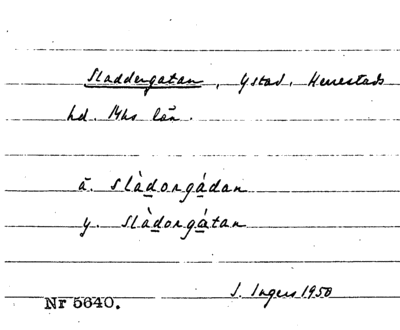 Sladdergatan, Ystad, Herrestads
hd. Mhs län.
ä. slàdorgádan
y. slàdorgátan
I. Ingers 1950
Nr 5640.